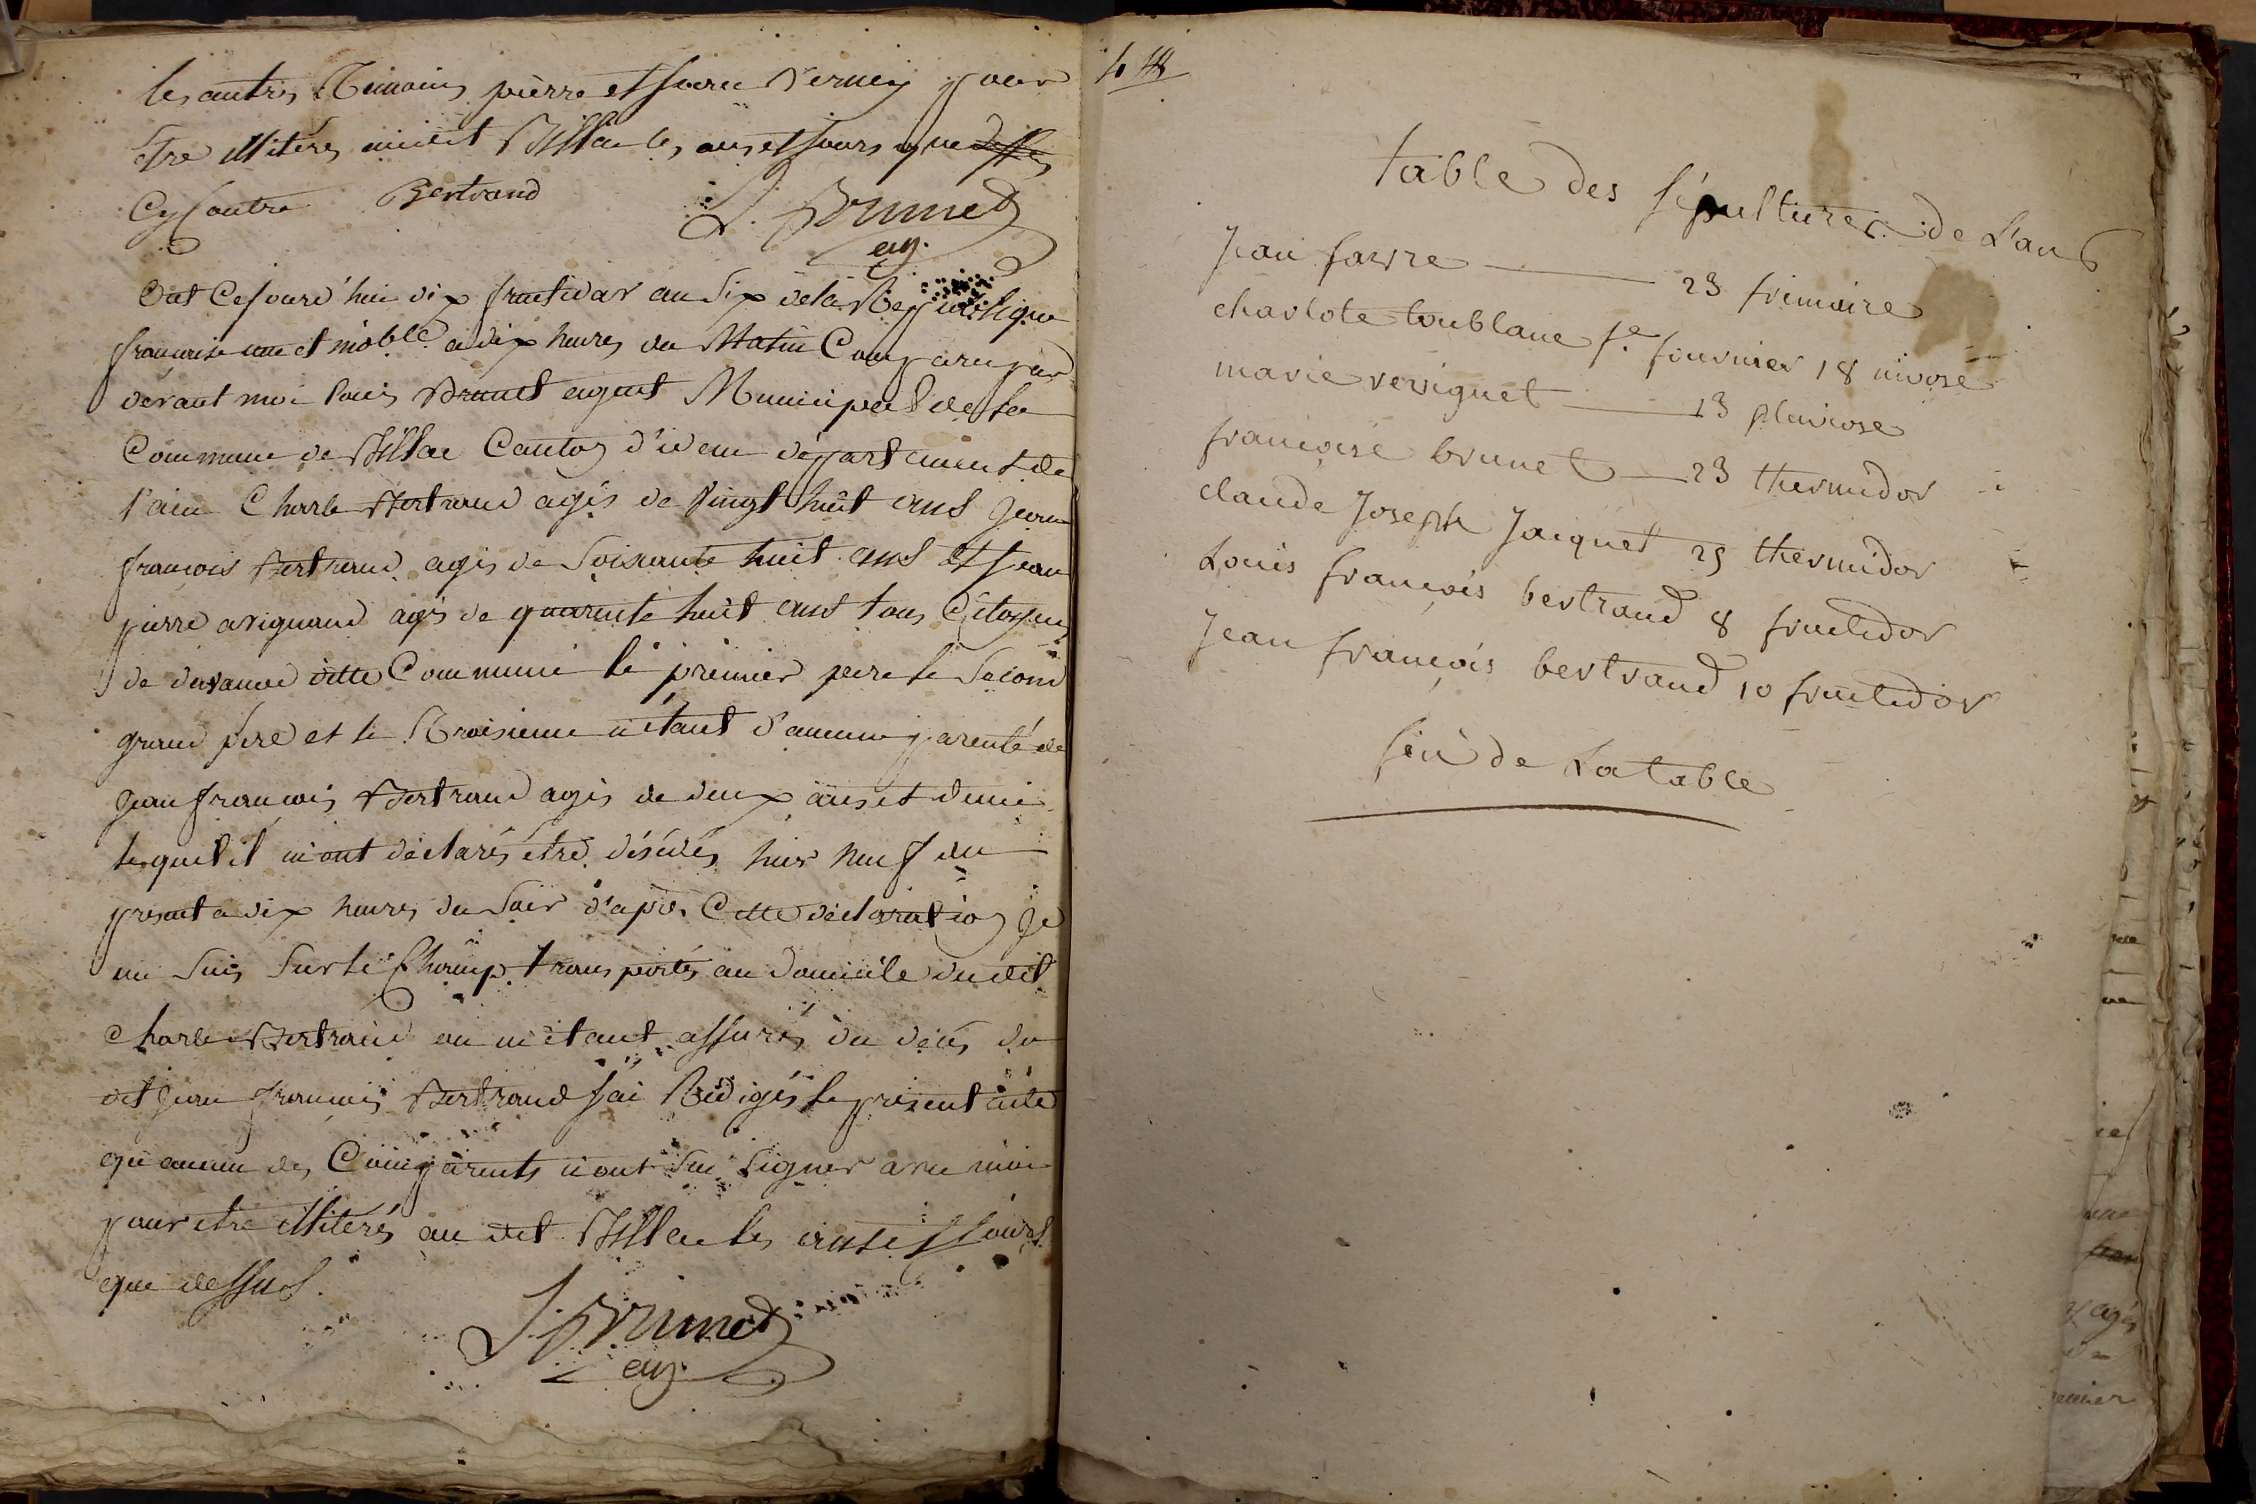 les autres Témoins pierre et Marie Verney pour
être illiteré audit Billiat les an et jours que dessus
Cy Contre Bertrand
L. Brunet
ag.
Cut Cejourd'hui dix fructidor an Six de la Republique
francaise une et indible a dix heures du Matin Comparu par
devant moi Louis Brunet agent Municipal de la
Commune de Billiat Canton d'idem département de
l'ain Charle Bertrand agés de vingt huit ans Jean
françois Bertrand agés de Soixante huit ans et Jean
pierre avignand agés de quarente huit ans tous Citoyens
de ditte Commune le premier pere le Second
grand pere et le Troisieme n'étant d'aucune parenté de
Jean françois Bertrand agés de deux ans et demie
lequel il m'ont déclarés étre désédés hier neuf du
present a dix heures du Soir d'après Cette déclaration Je
me Suis Sur le Champ transportés au domicile dudit
Charle Bertrand ou m'étant assurés du décés du
dit Jean françois Bertrand J'ai Rédigés le present acte
qu'aucun des Comparents n'ont Su Signer avec moi
pour étre illiterés au dit Billiat les an et Jours
que dessus.
L. Brunet
ag.
table des sépultures de L'an 6
Jean favre 23 frimaire
charlote toublanc fe. fournier 18 nivose
marie versignet 13 pluviose
françoise brunet 23 thermidor
claude Joseph Jacquet 25 thermidor
Louis françois bertrand 8 fructidor
Jean françois bertrand 10 fructidor
fin de La table